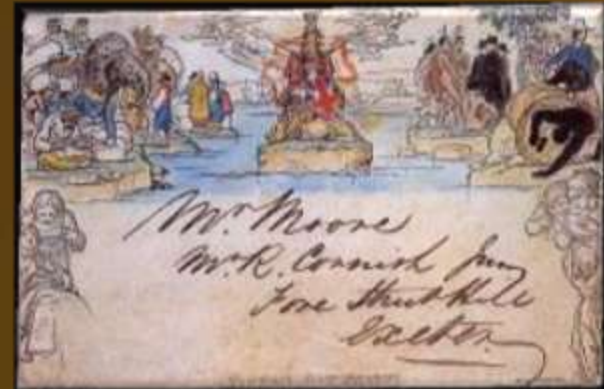 Mr Moore
Mr R. Cornish Junr
Fore Street Hill
Exeter